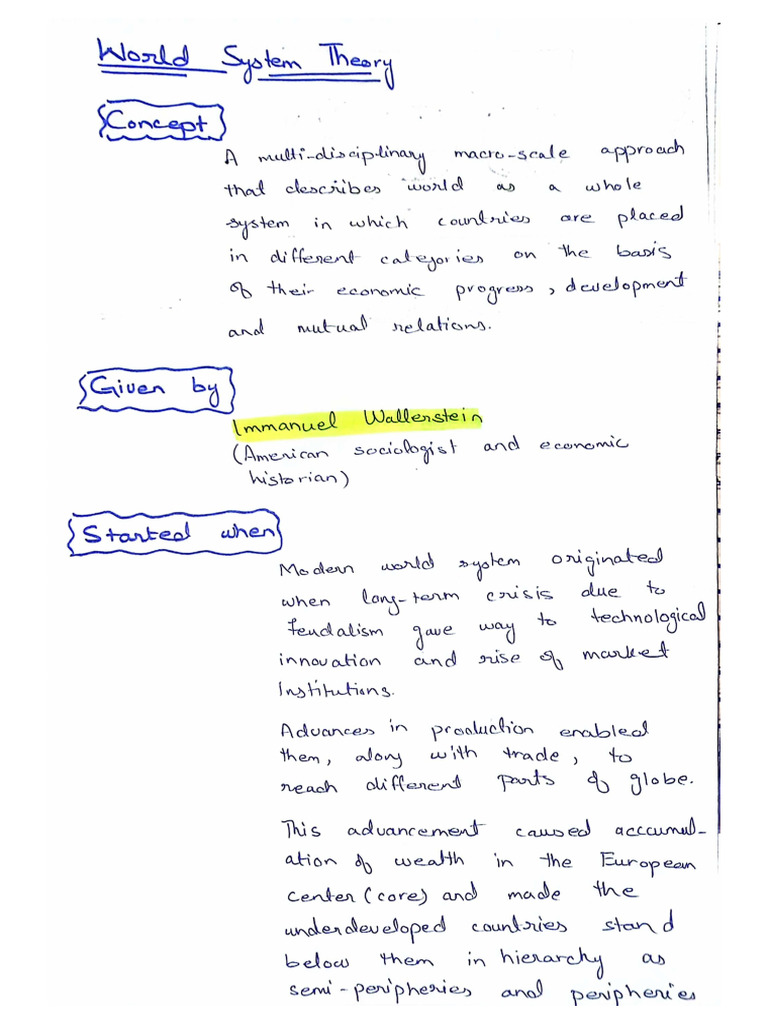 World System Theory
Concept
A multi-disciplinary macro-scale approach
that describes world as a whole
system in which countries are placed
in different categories on the basis
of their economic progress, development
and mutual relations.
Given by
Immanuel Wallenstein
(American sociologist and economic
historian)
Started when
Modern world system originated
when long-term crisis due to
feudalism gave way to technological
innovation and rise of market
Institutions.
Advances in production enabled
them, along with trade, to
reach different parts of globe.
This advancement caused acccumul-
ation of wealth in the European
center (core) and made the
underdeveloped countries stand
below them in hierarchy as
semi-peripheries and peripheries